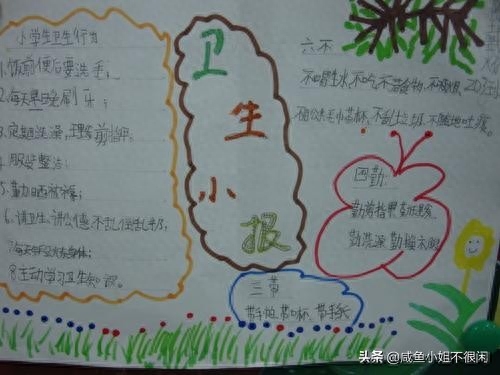 小学生卫生行为
1.饭前便后要洗手;
2.每天早晚刷牙;
3.定期洗澡,理发剪指甲;
4.服装整洁;
5.勤晒被褥;
6.讲卫生,讲公德不乱倒乱扔;
7.每天
8.主动学习卫生知识。
卫生小报
六不
不喝生水,不吃不洁食物,不吸烟,
不用公共毛巾茶杯,不乱丢垃圾,不随地吐痰。
四勤:
勤剪指甲
勤洗澡 勤换衣服
三带
带手帕,带口杯,带手纸
头条 @咸鱼小姐不很闲